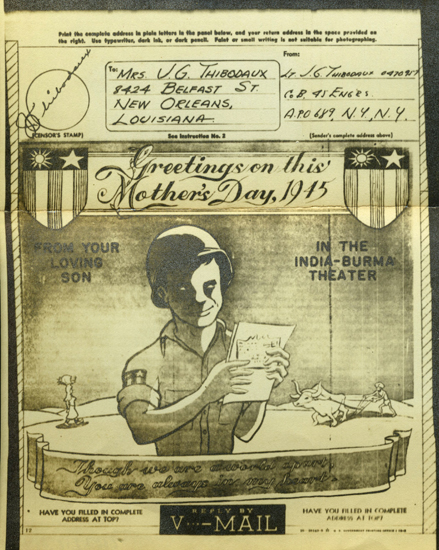 Print the complete address in plain letters in the panel below, and your return address in the space provided on
the right. Use typewriter, dark ink, or dark pencil. Faint or small writing is not suitable for photographing.
Thibodaux
(CENSOR'S STAMP)
To:
MRS. J.G. THIBODAUX
8424 BELFAST ST.
NEW ORLEANS,
LOUISIANA
See Instruction No. 2
From:
LT. J.G. THIBODAUX
Co B, 45 ENGRS.
A.P.O 689, N.Y., N.Y.
(Sender's complete address above)
Greetings on this
Mother's Day, 1945
FROM YOUR
LOVING
SON
IN THE
INDIA-BURMA
THEATER
Though we are apart
You are always in my heart
HAVE YOU FILLED IN COMPLETE
ADDRESS AT TOP?
REPLY BY
V···—MAIL
HAVE YOU FILLED IN COMPLETE
ADDRESS AT TOP?